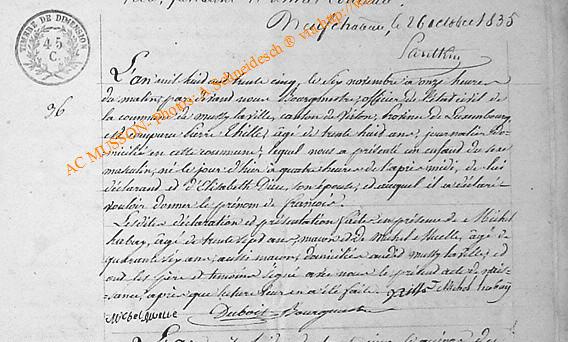 Neufchateau, le 26 octobre 1835
TIMBRE DE DIMENSION
45 C.
36
L'an mil huit cent trente cinq, le six novembre à onze heures
du matin, par devant nous Bourgmestre, officier de l'état civil de
la commune de Mussy la ville, canton de Virton, province de Luxembourg,
est comparu Pierre Thille, âgé de trente huit ans, journalier do-
micilié en cette commune; lequel nous a présenté un enfant du sexe
masculin, né le jour d'hier à quatre heures de l'après midi, de lui
déclarant et d'Elisabeth, son épouse; et auquel il a déclaré
vouloir donner le prénom de françois
Lesdites déclaration et présentation faites en présence de Michel
âgé de trente sept ans, maçon et de Michel, âgé de
quarante six ans, aussi maçon, domiciliés audit Mussy la ville; et
ont les père et témoins signé avec nous le présent acte de nais-
sance, après que lecture leur en a été faite. Michel
Michel
Dubois Bourgmestre
AC MUSSON- Photo: A. Schneidesch ® via www.thill-online